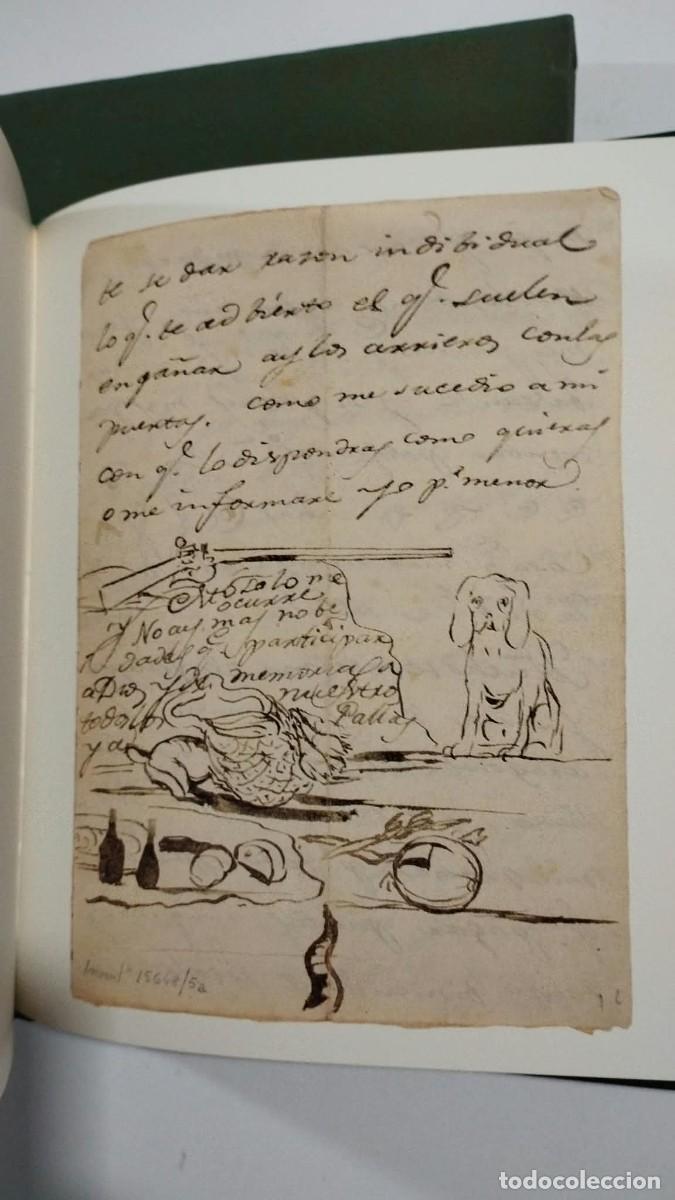 te se dar razon indibidual
lo q.e te adbierto el q.e suelen
engañar ay los arrieros conlas
puertas. como me sucedio a mi
con q.e lo dispondras como quieras
o me informaré yo p.r menor.
Esto solo me
ocurre
y No ay mas nobe
dades q.e participar
a Dios y memorias a
todos los nuestro Pallas
y a
Invent.o 15648/5a
todocoleccion